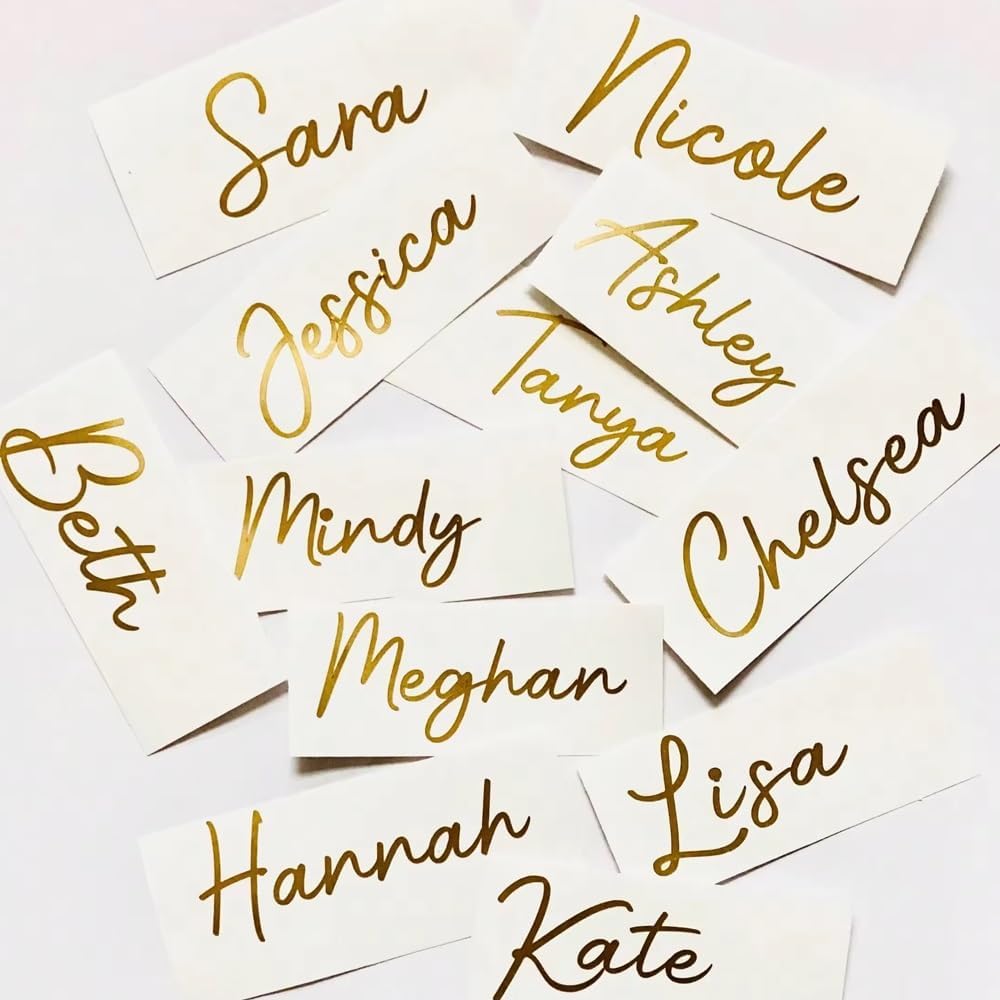 Sara
Nicole
Jessica
Ashley
Tanya
Beth
Mindy
Chelsea
Meghan
Lisa
Hannah
Kate